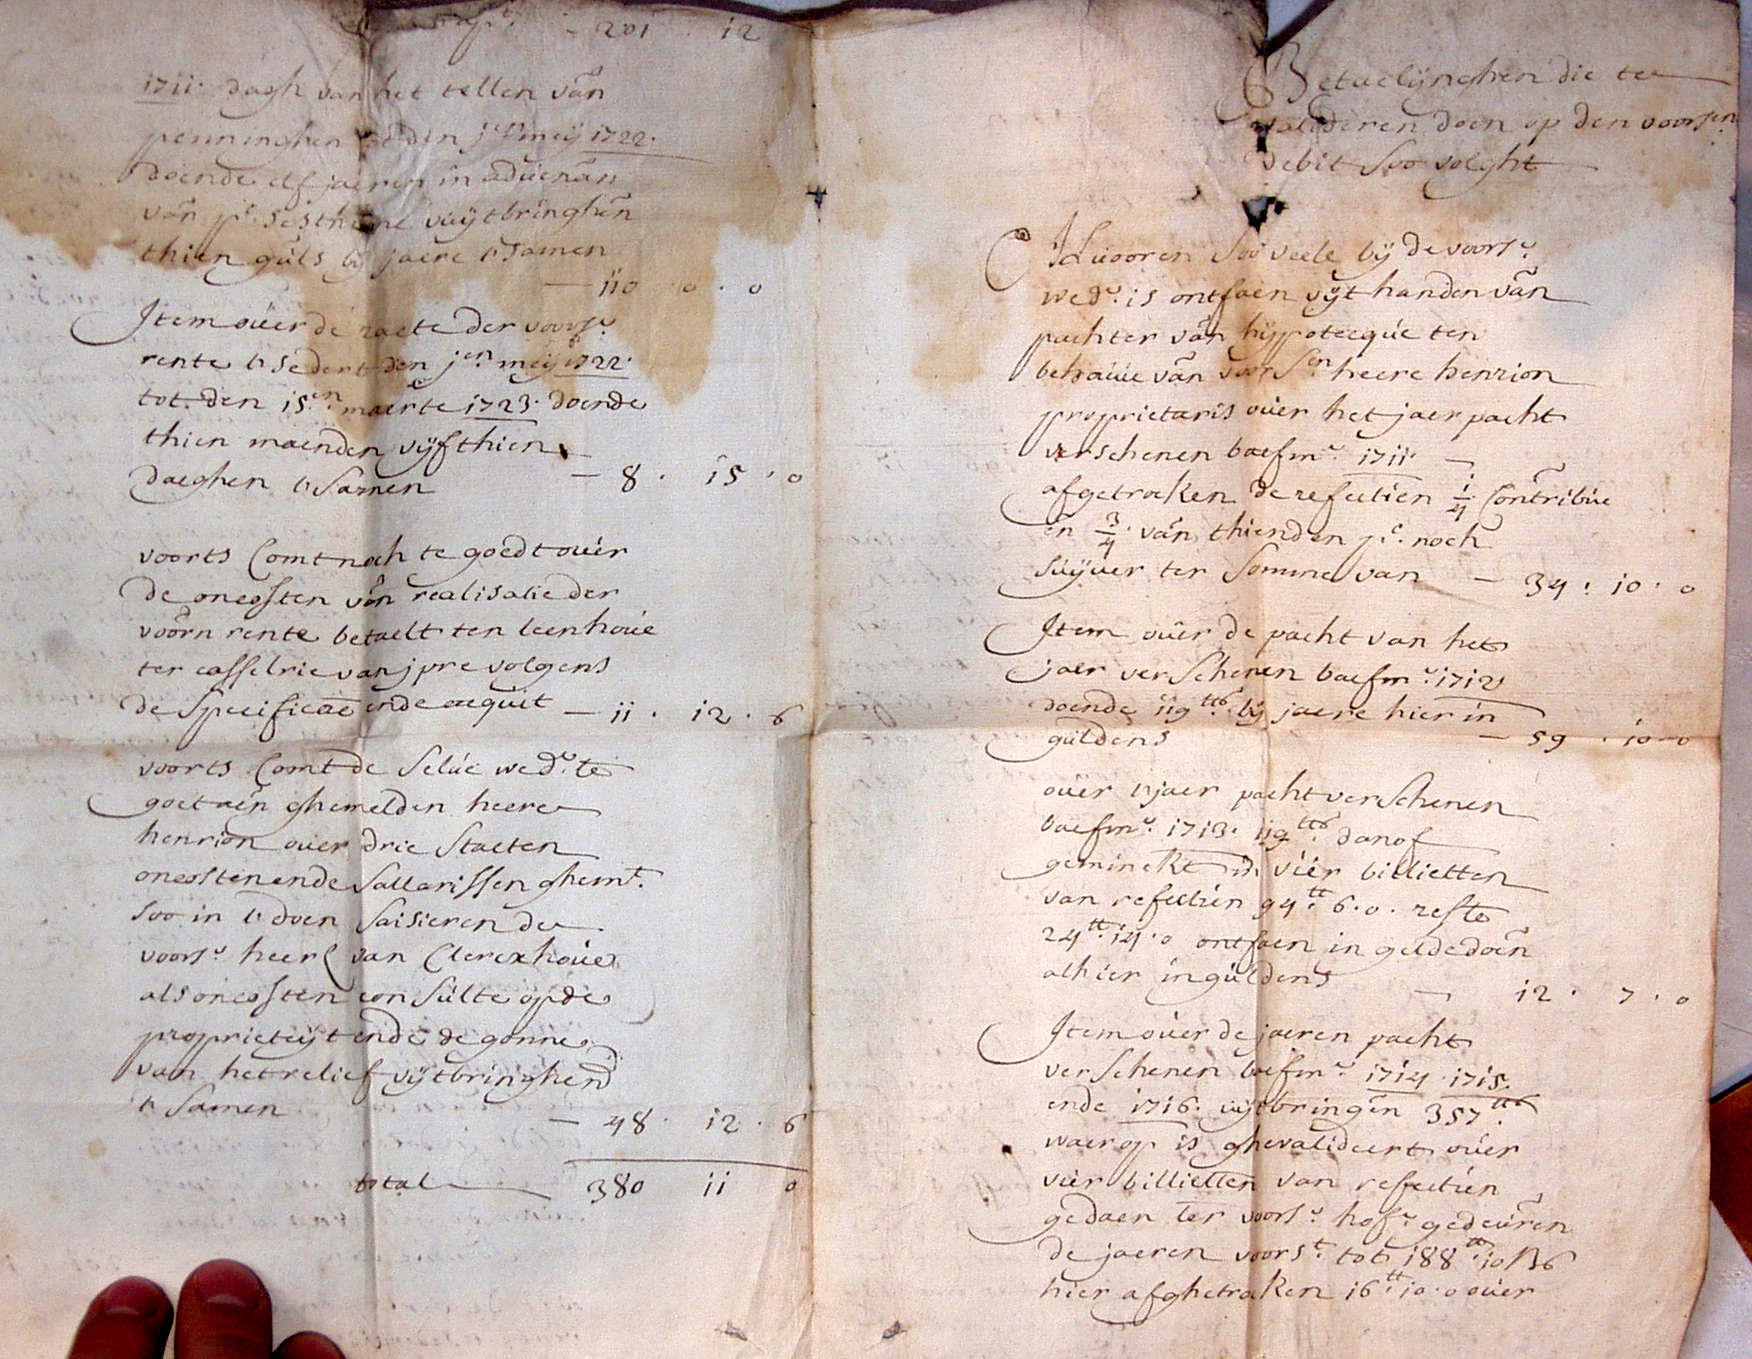 201 . 12
1711. dagh van het tellen van
penninghen tot den jen meij 1722.
doende elf jaeren in advenan
van pr. sesthiene uuijtbringhen
thien guls by jaere tsamen
— 110 . 0 . 0
Item over de raete der voorsr.
rente tsedert den jen meij 1722.
tot den 15en maerte 1723. doende
thien maenden vijfthien
daeghen tsamen — 8 . 15 . 0
voorts Comt noch te goedt over
de oncosten van realisatie der
voorn rente betaelt ten leenhove
ter casselrie van jpre volgens
de specificae ende acquit — 11 . 12 . 6
voorts Comt de selve wedr. te
goet aen ghemelden heere
henrion over drie staeten
oncosten ende sallarissen ghemt.
soo in t doen saisieren de
voorsr. heerl van Clerexhove
als oncosten consulte op de
proprieteijt ende de gonne
van het relief vijtbringhend
tsamen — 48 . 12 . 6
total — 380 11 0
Betaelijnghen die te
valideren doen op den voorsen
debit soo volght
Alvooren soo veele bij de voorsr.
wedr. is ontfaen uijt handen van
pachter van hijpotecque ten
behouve van voorsen heere henrion
proprietaris over het jaer pacht
verschenen baefmr. 1711. —
afgetrocken de refectien 1/4 Contribue
en 3/4 van thienden pr. noch
suijver ter somme van — 34 . 10 . 0
Item over de pacht van het
jaer verschenen baefmr. 1712
doende 119 tt bij jaere hier in
guldens — 59 . 10 - 0
over t jaer pacht verschenen
baefmr. 1713. 119 tt danof
geminckt vier billietten
van refectien 94 tt 6 . 0 . reste
24 tt 14 . 0 ontfaen in gelde doen
alhier in guldens — 12 . 7 . 0
Item over de jaeren pacht
verschenen baefmr. 1714 . 1715
ende 1716. uijtbringen 357 tt
waer op is ghevalideert over
vier billietten van refectien
gedaen ter voorsr. hofr. gedeuren
de jaeren voorst. tot 188 tt 10 s 6
hier afghetrocken 16 tt 10 . 0 over